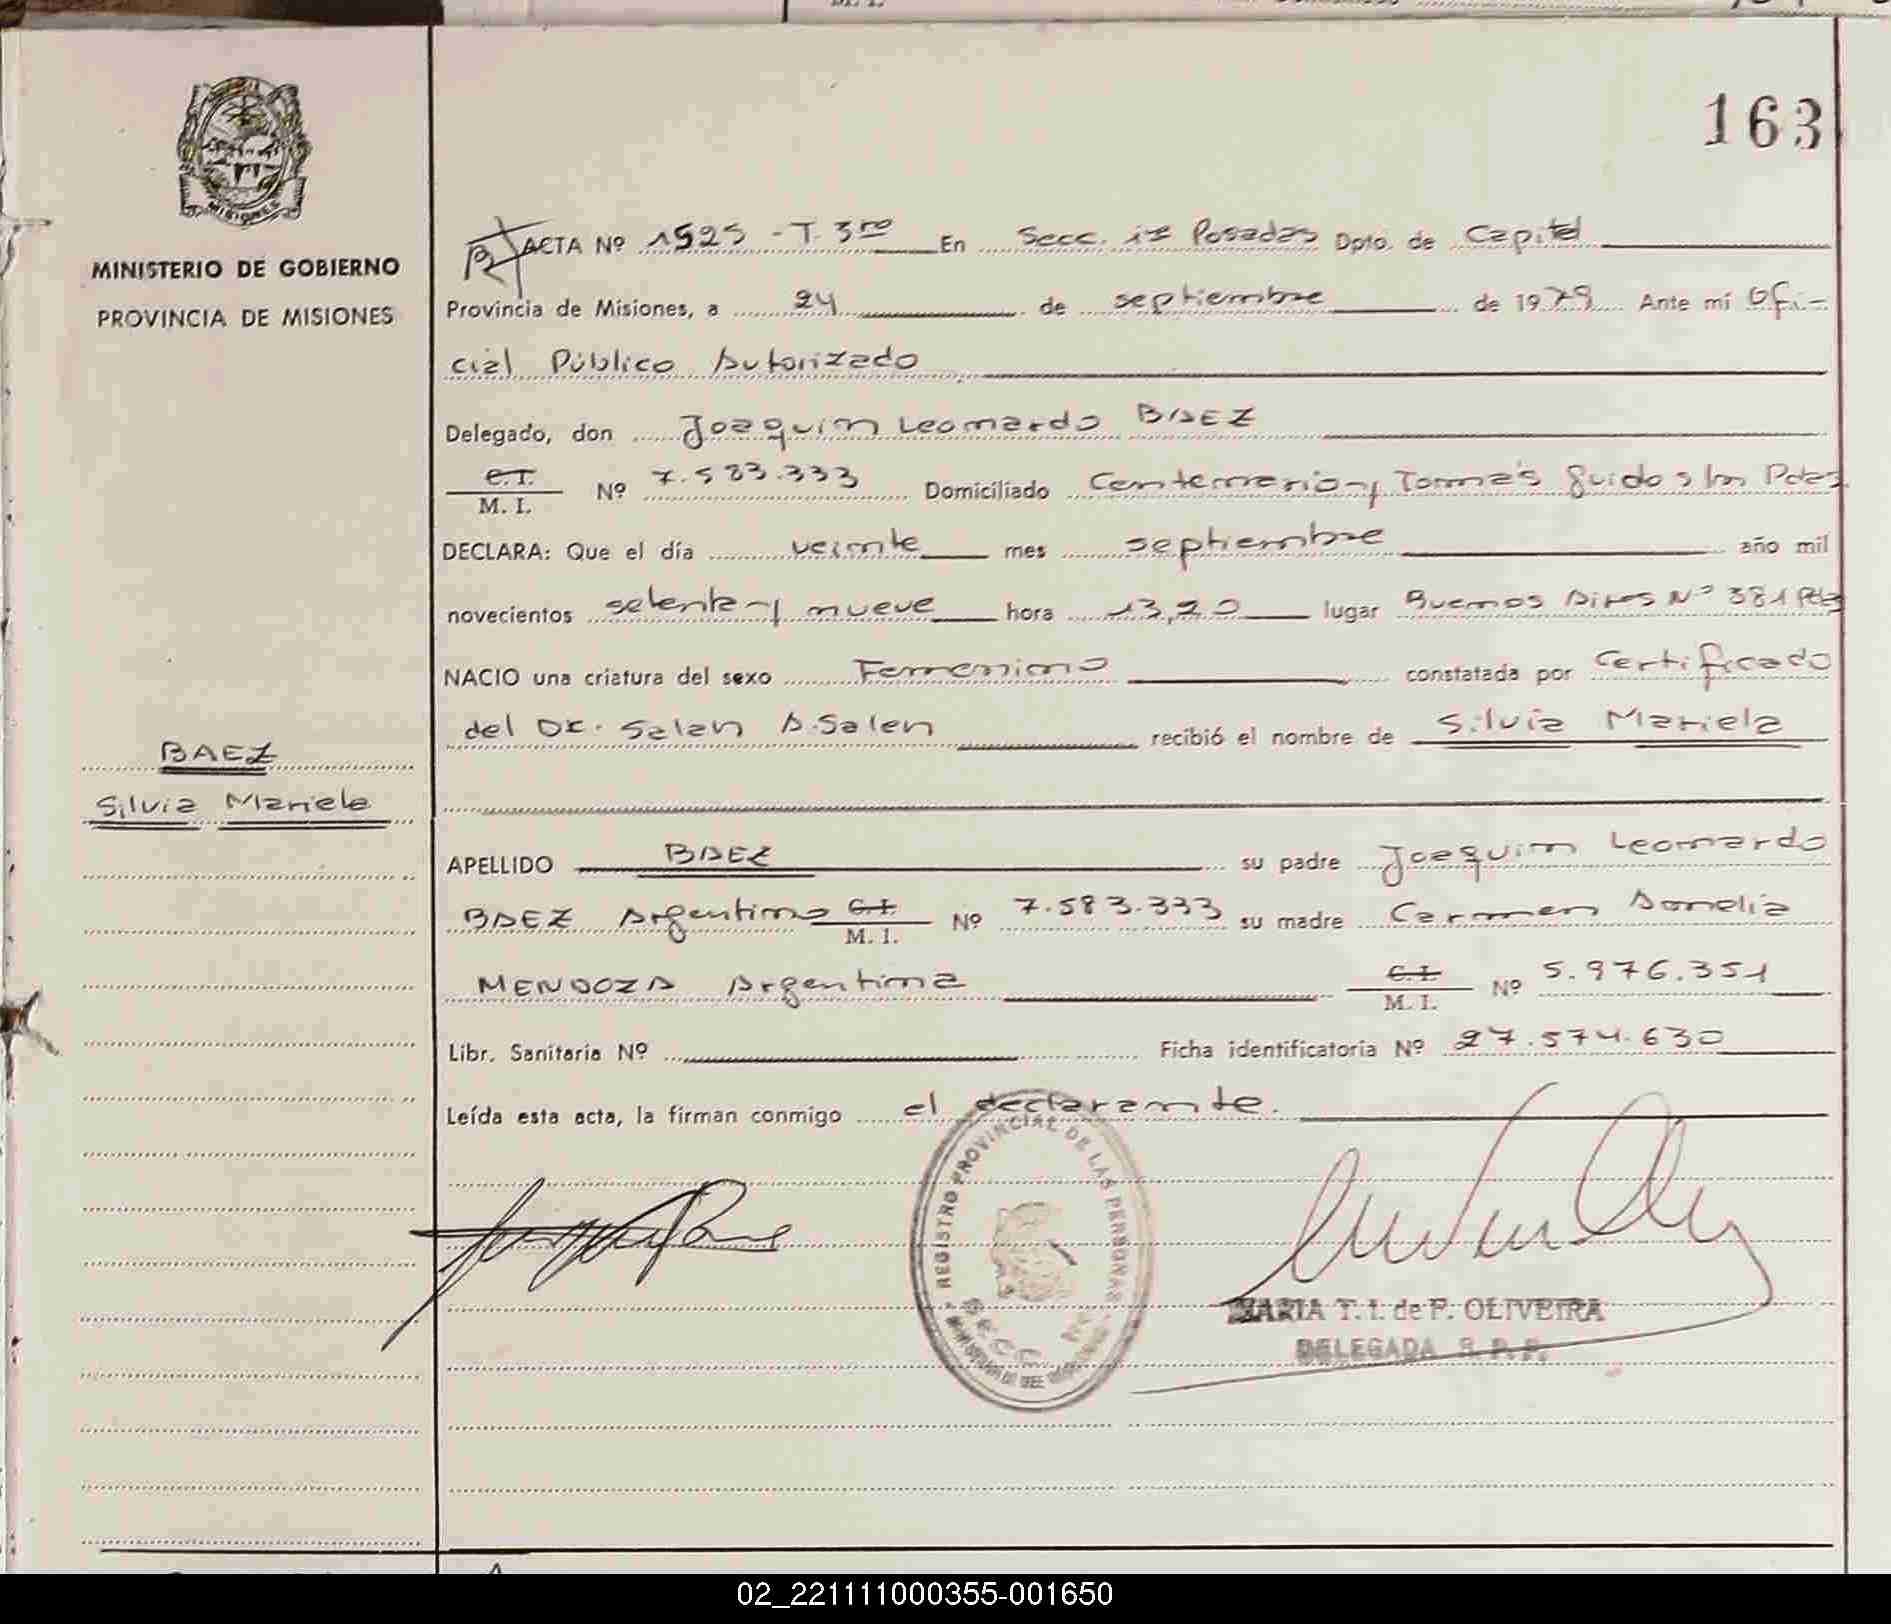 163
MISIONES
MINISTERIO DE GOBIERNO
PROVINCIA DE MISIONES
BAEZ
Silvia Mariela
ACTA Nº 1525 - T. 3ro En Secc. 1ª Posadas Dpto. de Capital
Provincia de Misiones, a 24 de septiembre de 1979 Ante mí Ofi-
cial Público Autorizado
Delegado, don Joaquin Leonardo BAEZ
C.I. M. I. Nº 7.583.333 Domiciliado Centenario y Tomas guido s/n Pdas
DECLARA: Que el día veinte mes septiembre año mil
novecientos setenta y nueve hora 13,20 lugar Buenos Aires Nº 381 Pdas
NACIO una criatura del sexo Femenino constatada por Certificado
del Dr. Salan A. Salen recibió el nombre de Silvia Mariela
APELLIDO BAEZ su padre Joaquin Leonardo
BAEZ Argentino C.I. M. I. Nº 7.583.333 su madre Carmen Donelia
MENDOZA Argentina C.I. M. I. Nº 5.976.351
Libr. Sanitaria Nº Ficha identificatoria Nº 27.574.630
Leída esta acta, la firman conmigo el declarante.
REGISTRO PROVINCIAL DE LAS PERSONAS
SECC
MARIA T. I. de P. OLIVEIRA
DELEGADA R. P. P.
02_221111000355-001650